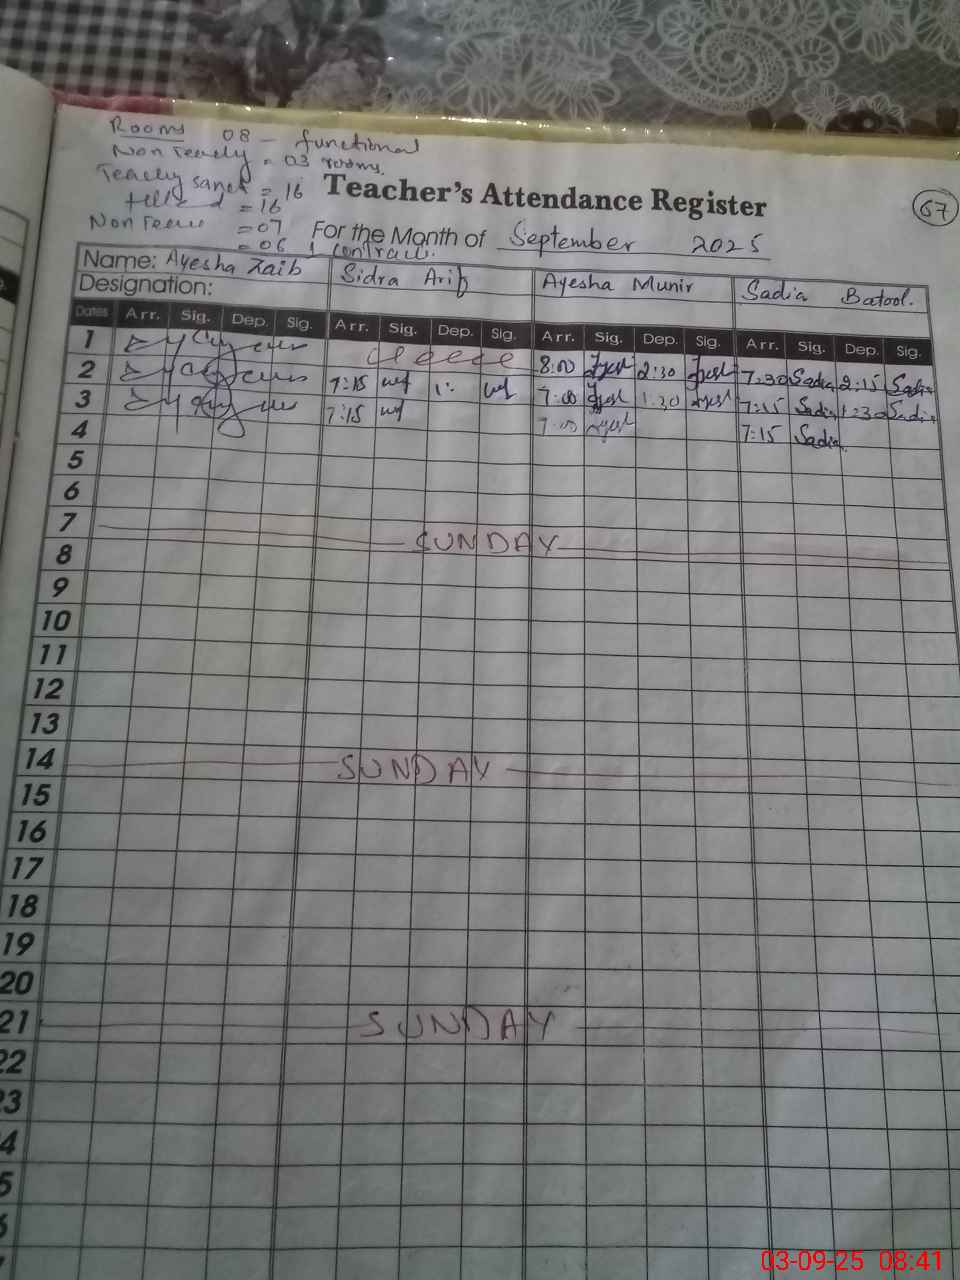 Rooms 08 - functional
Non Teachy = 03 rooms.
Teachy sanct = 16
= 16
Non = 07
= 06 1 contract.
67
Teacher's Attendance Register
For the Month of September 2025
Name: Ayesha Zaib Sidra Arif Ayesha Munir Sadia Batool.
Designation:
Dates Arr. Sig. Dep. Sig. Arr. Sig. Dep. Sig. Arr. Sig. Dep. Sig. Arr. Sig. Dep. Sig.
1 8:00 2:30 7:30 Sadia 2:15 Sadia
2 7:15 1: 7:00 1:30 7:15 Sadia 1:30 Sadia
3 7:15 7:00 7:15 Sadia
4
5
6
7 SUNDAY
8
9
10
11
12
13
14 SUNDAY
15
16
17
18
19
20
21 SUNDAY
22
23
4
5
6
03-09-25 08:41